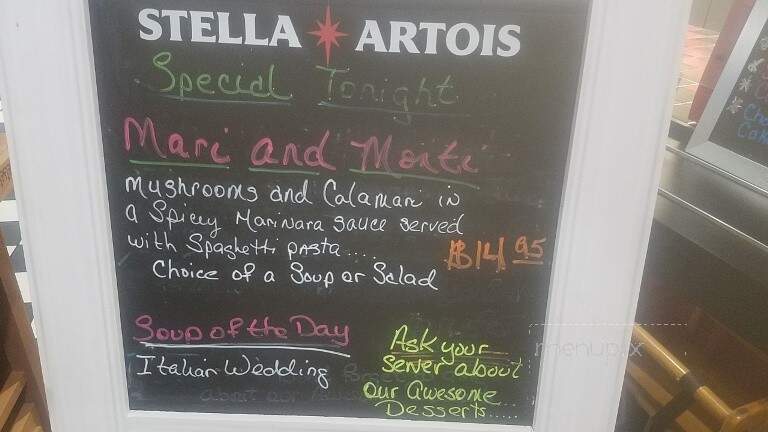 STELLA ARTOIS
Special Tonight
Mari and Monti
Mushrooms and Calamari in
a Spicy Marinara Sauce served
with Spaghetti pasta....
$14.95
Choice of a Soup or Salad
Soup of the Day
Italian Wedding
Ask your
Server about
Our Awesome
Desserts.....
about our
menupix